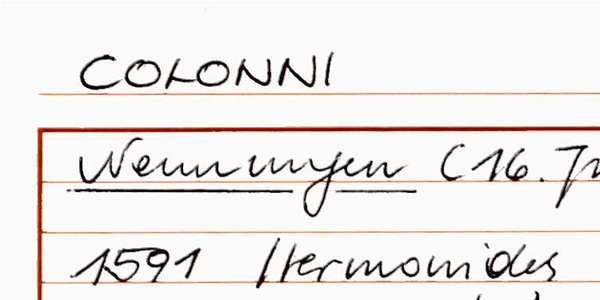 COLONNI
Nennungen (16. J
1591 Hermonides